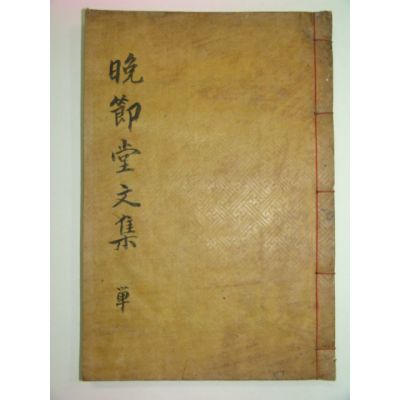 晩節堂文集 単